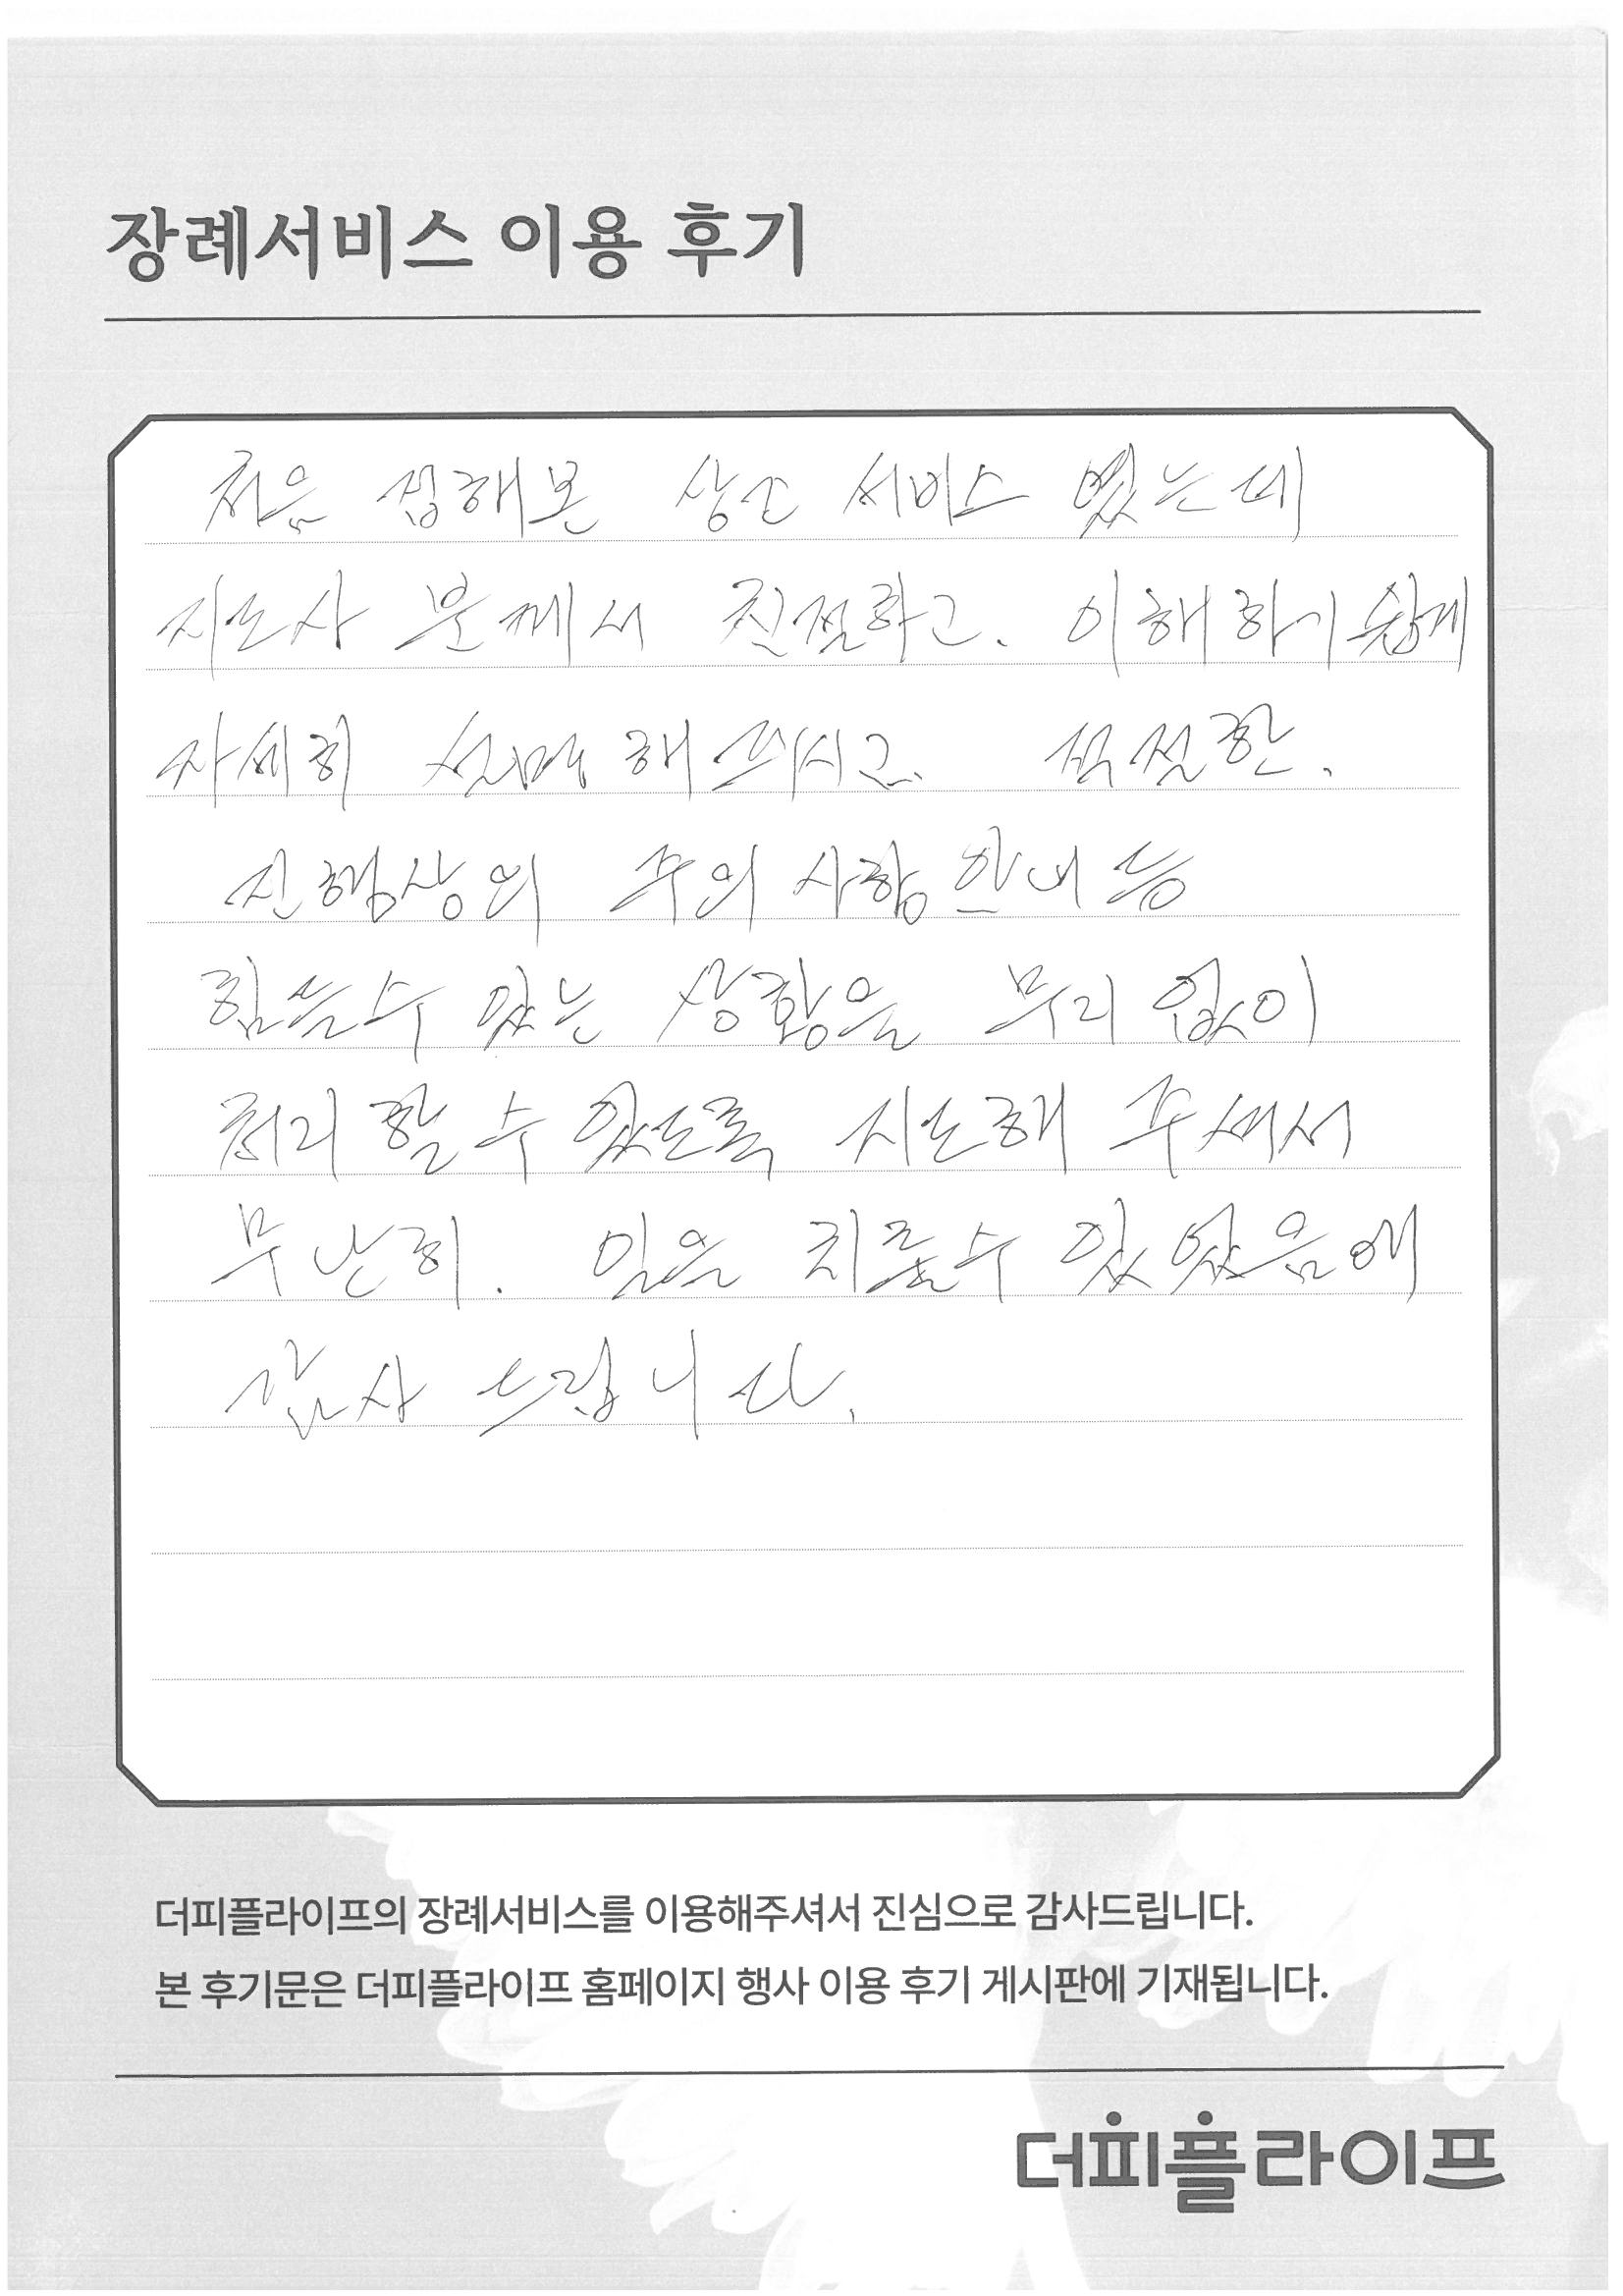 장례서비스 이용 후기
처음 접해본 상조 서비스 였는데
지도사 분께서 친절하고. 이해하기 쉽게
자세히 설명해주시고. 적절한.
진행상의 주의 사항 안내 등
힘들수 있는 상황을 무리 없이
처리 할 수 있도록 지도해 주셔서
무난히. 일을 치룰수 있었음에
감사 드립니다.
더피플라이프의 장례서비스를 이용해주셔서 진심으로 감사드립니다.
본 후기문은 더피플라이프 홈페이지 행사 이용 후기 게시판에 기재됩니다.
더피플라이프